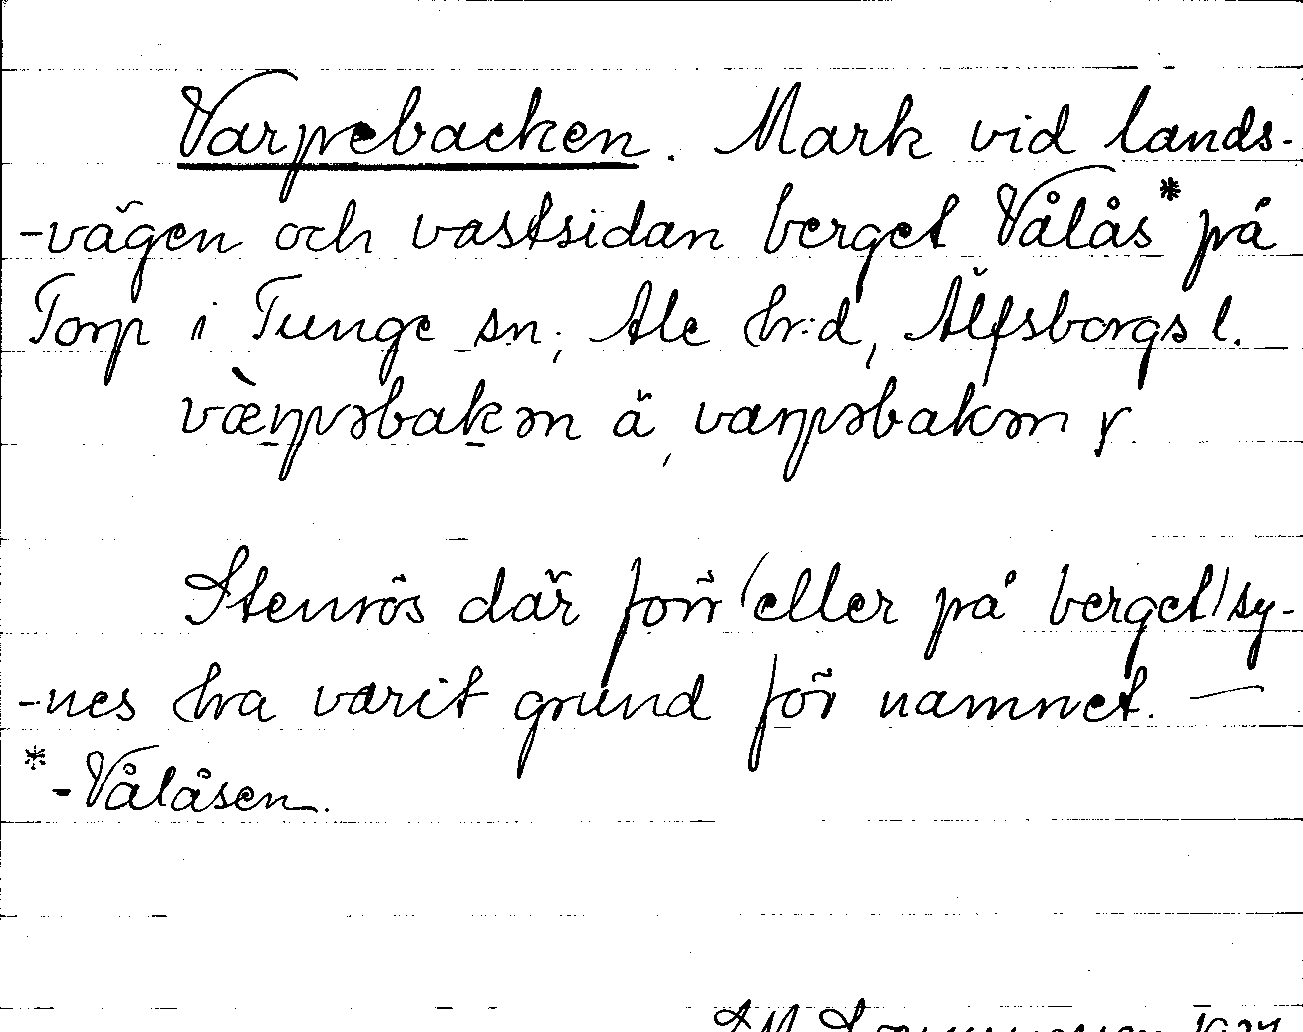 Varpebacken. Mark vid lands-
-vägen och vastsidan berget Vålås* på
Torp i Tunge sn, Ale hr:d, Älfsborgs l.
væ̀rpəbakən ä, varpəbakən y
Stenrös där förr (eller på berget) sy-
-nes ha varit grund för namnet. —
* -Vålåsen.